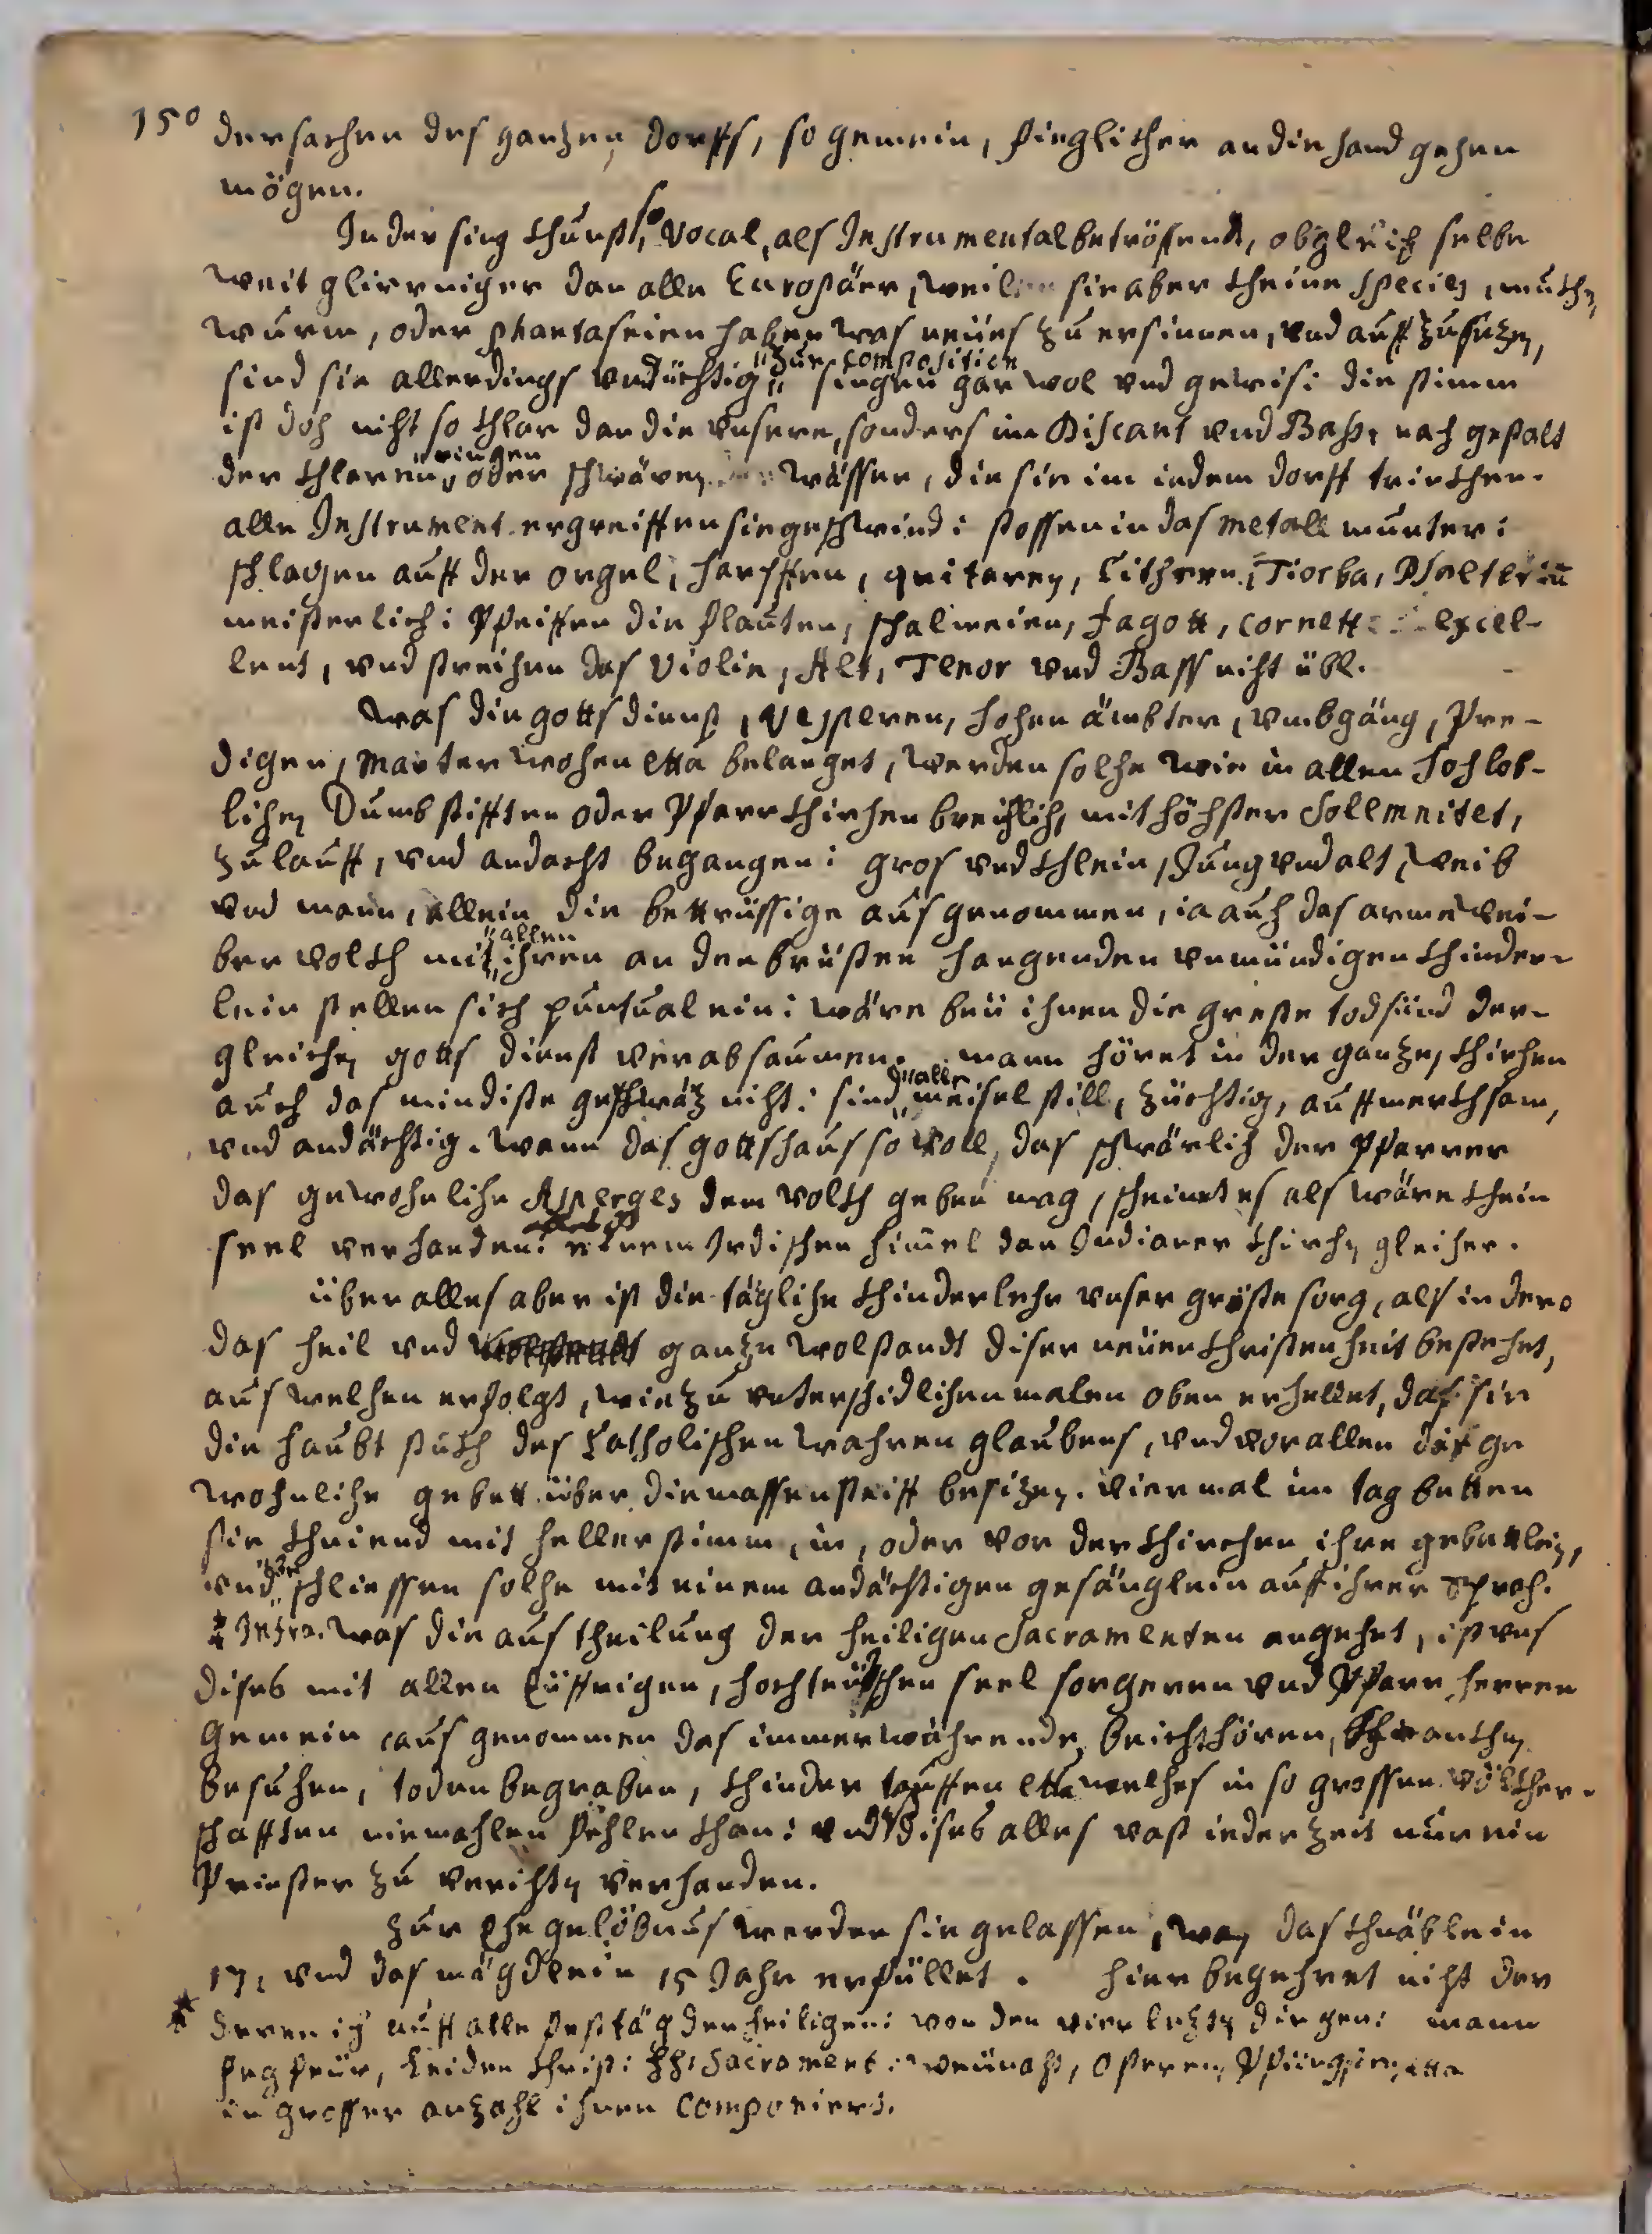 150 der sachen des gantzen dorffs, so gemein, füeglicher an die hand gehen
mögen.
In der sing khunst, so Vocal, als Instrumental betröffend, obgleich selbe
weit glirrniger dan alle Europäer, weilen sie aber kheine species, mukhen
wurm, oder phantaseien haben was neües zu ersinnen, vnd auff zu sezen,
sind sie allerdings vndüchtig "zur composition" singen gar wol vnd gewis: die stimm
ist doch nicht so khlar dan die vnsere, sonders im Discant vnd Bass: nach gestalt
der khleren, "ringen" oder schwären wässer, die sie im iedem dorff trinkhen.
alle Instrument ergreiffen sie geschwind: stossen in das metall munter:
schlagen auff der orgel, harffen, quitaren, Cithren, Tiorba, Psalteriu
meisterlich: Pfeiffen die flauten, schalmeien, fagott, cornett excel-
lent, vnd streichen das Violin, Alt, Tenor vnd Bass nicht übl.
Was die gottsdienst, Vesperen, hohen ämbter, vmbgäng, Pre-
digen, Marter wohen etta belanget, werden solche wie in allen hochlob-
lichen Dumbstifften oder Pfarrkhirchen breichlich, mit höchster Sollemnitet,
zulauff, vnd andacht begangen: gros vnd khlein, Jung vnd alt, weib
vnd mann, allein die bettrüssige ausgenommen, ia auch das arme wei-
ber volkh mit "allen" ihren an den brüsten hangenden vnmündigen khinder-
lein stellen sich puntual ein: wäre beü ihnen die greste todsünd der-
gleichen gotts dienst verabsaumen. mann höret in der gantzen khirchen
auch das mindiste geschwäz nicht: sind "alle" meisel still, züchtig, auffmerkhsam,
vnd andächtig. wann das gottshaus so voll, das schwärlich der Pfarrer
das gewohnliche Asperges dem volkh geben mag, scheinet es als wäre khein
seel verhanden: einem Irdischen himmel dan Indianer khirchen gleicher.
über alles aber ist die tägliche khinderlehr vnser gröste sorg, als in dero
das heil vnd gantze wolstandt diser neüen Christenheit bestehet,
aus welchen erfolgt, wie zu vnterschidlichen malen oben erhellet, das sie
die haubt stukh des Catholischen wahren glaubens, vnd vor allen die ge
wohnliche gebett über die massen steiff besizen. viermal im tag betten
sie khniend mit heller stimm, in, oder vor der khirchen ihre gebettlein,
vnd schliessen solche mit einem andächtigen gesänglein auff ihrer Sprach.
* Infra. was die austheilung der heiligen Sacramenten angehet, ist vns
dises mit allen Eüffrigen, hochteütschen seel sorgeren vnd Pfarr herren
gemein ausgenommen das immerwährende beichthören, khrankhen
besuchen, toden begraben, khinder tauffen etta welches in so grossen völkher-
schafften niemahlen fehlen khan: vnd dises alles vast iederzeit nur ein
Priester zu verichten verhanden.
Zur Ehe gelöbnus werden sie gelassen, wan das khnäblein
17, vnd das mägdlein 15 Jahr erfüllet. hier begehret nicht der
* deren ich auff alle festtäg der heiligen: von den vier lezten dingen: mann
fegfeür, Leiden Christi: HH: Sacrament: weünacht, Osteren, Pfingsten, etta
in grosser anzahl ihnen componiert.